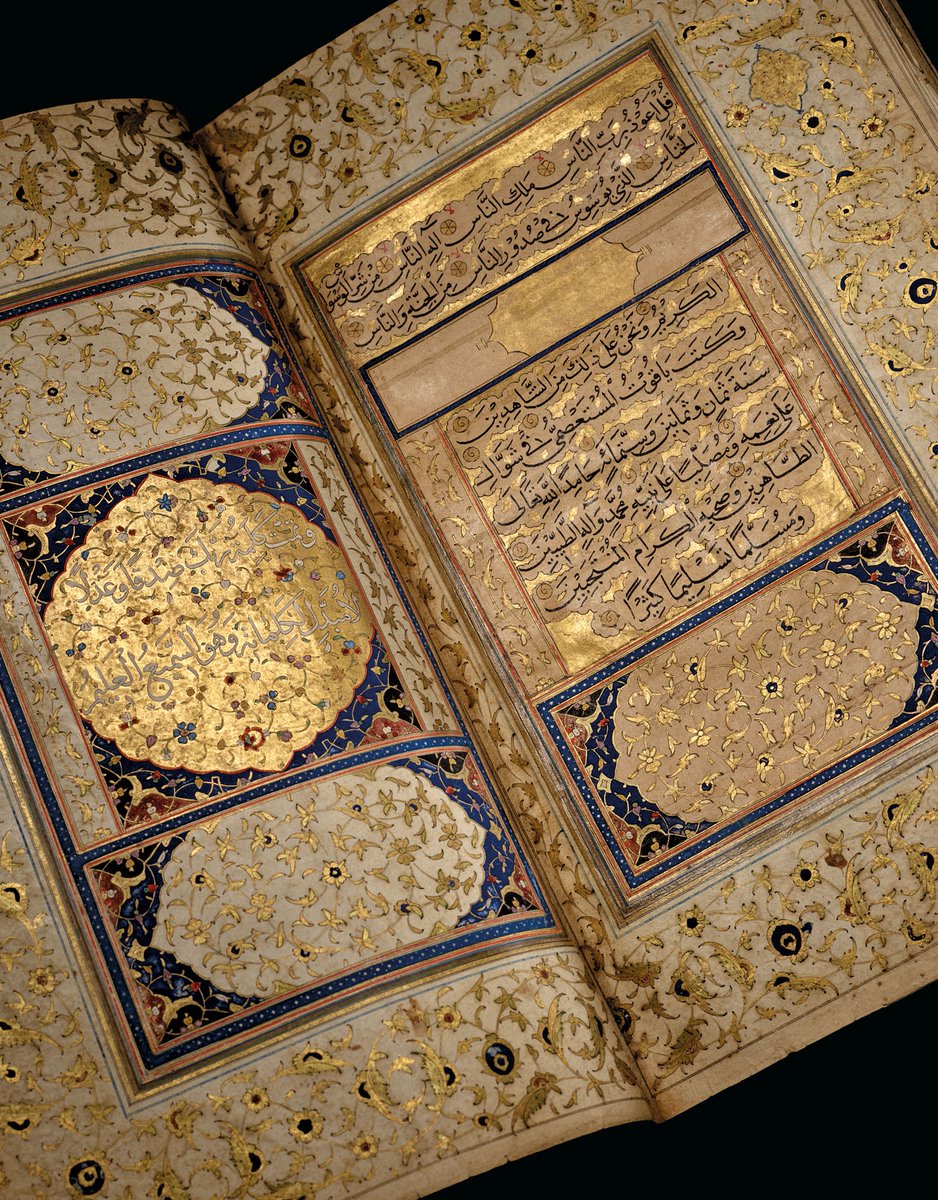 قل اعوذ برب الناس ملك الناس اله الناس من شر الوسواس
الخناس الذي يوسوس في صدور الناس من الجنة والناس
الكريم ونحن على ذلك من الشاهدين
وكتب ياقوت المستعصمي في شوال
سنة ثمان وثمانين وستمائة حامدا لله تعالى
على نعمه ومصليا على نبيه محمد وآله الطيبين
الطاهرين وصحبه الكرام المنتجبين
ومسلما تسليما كثيرا
وتمت كلمة ربك صدقا وعدلا
لا مبدل لكلماته وهو السميع العليم